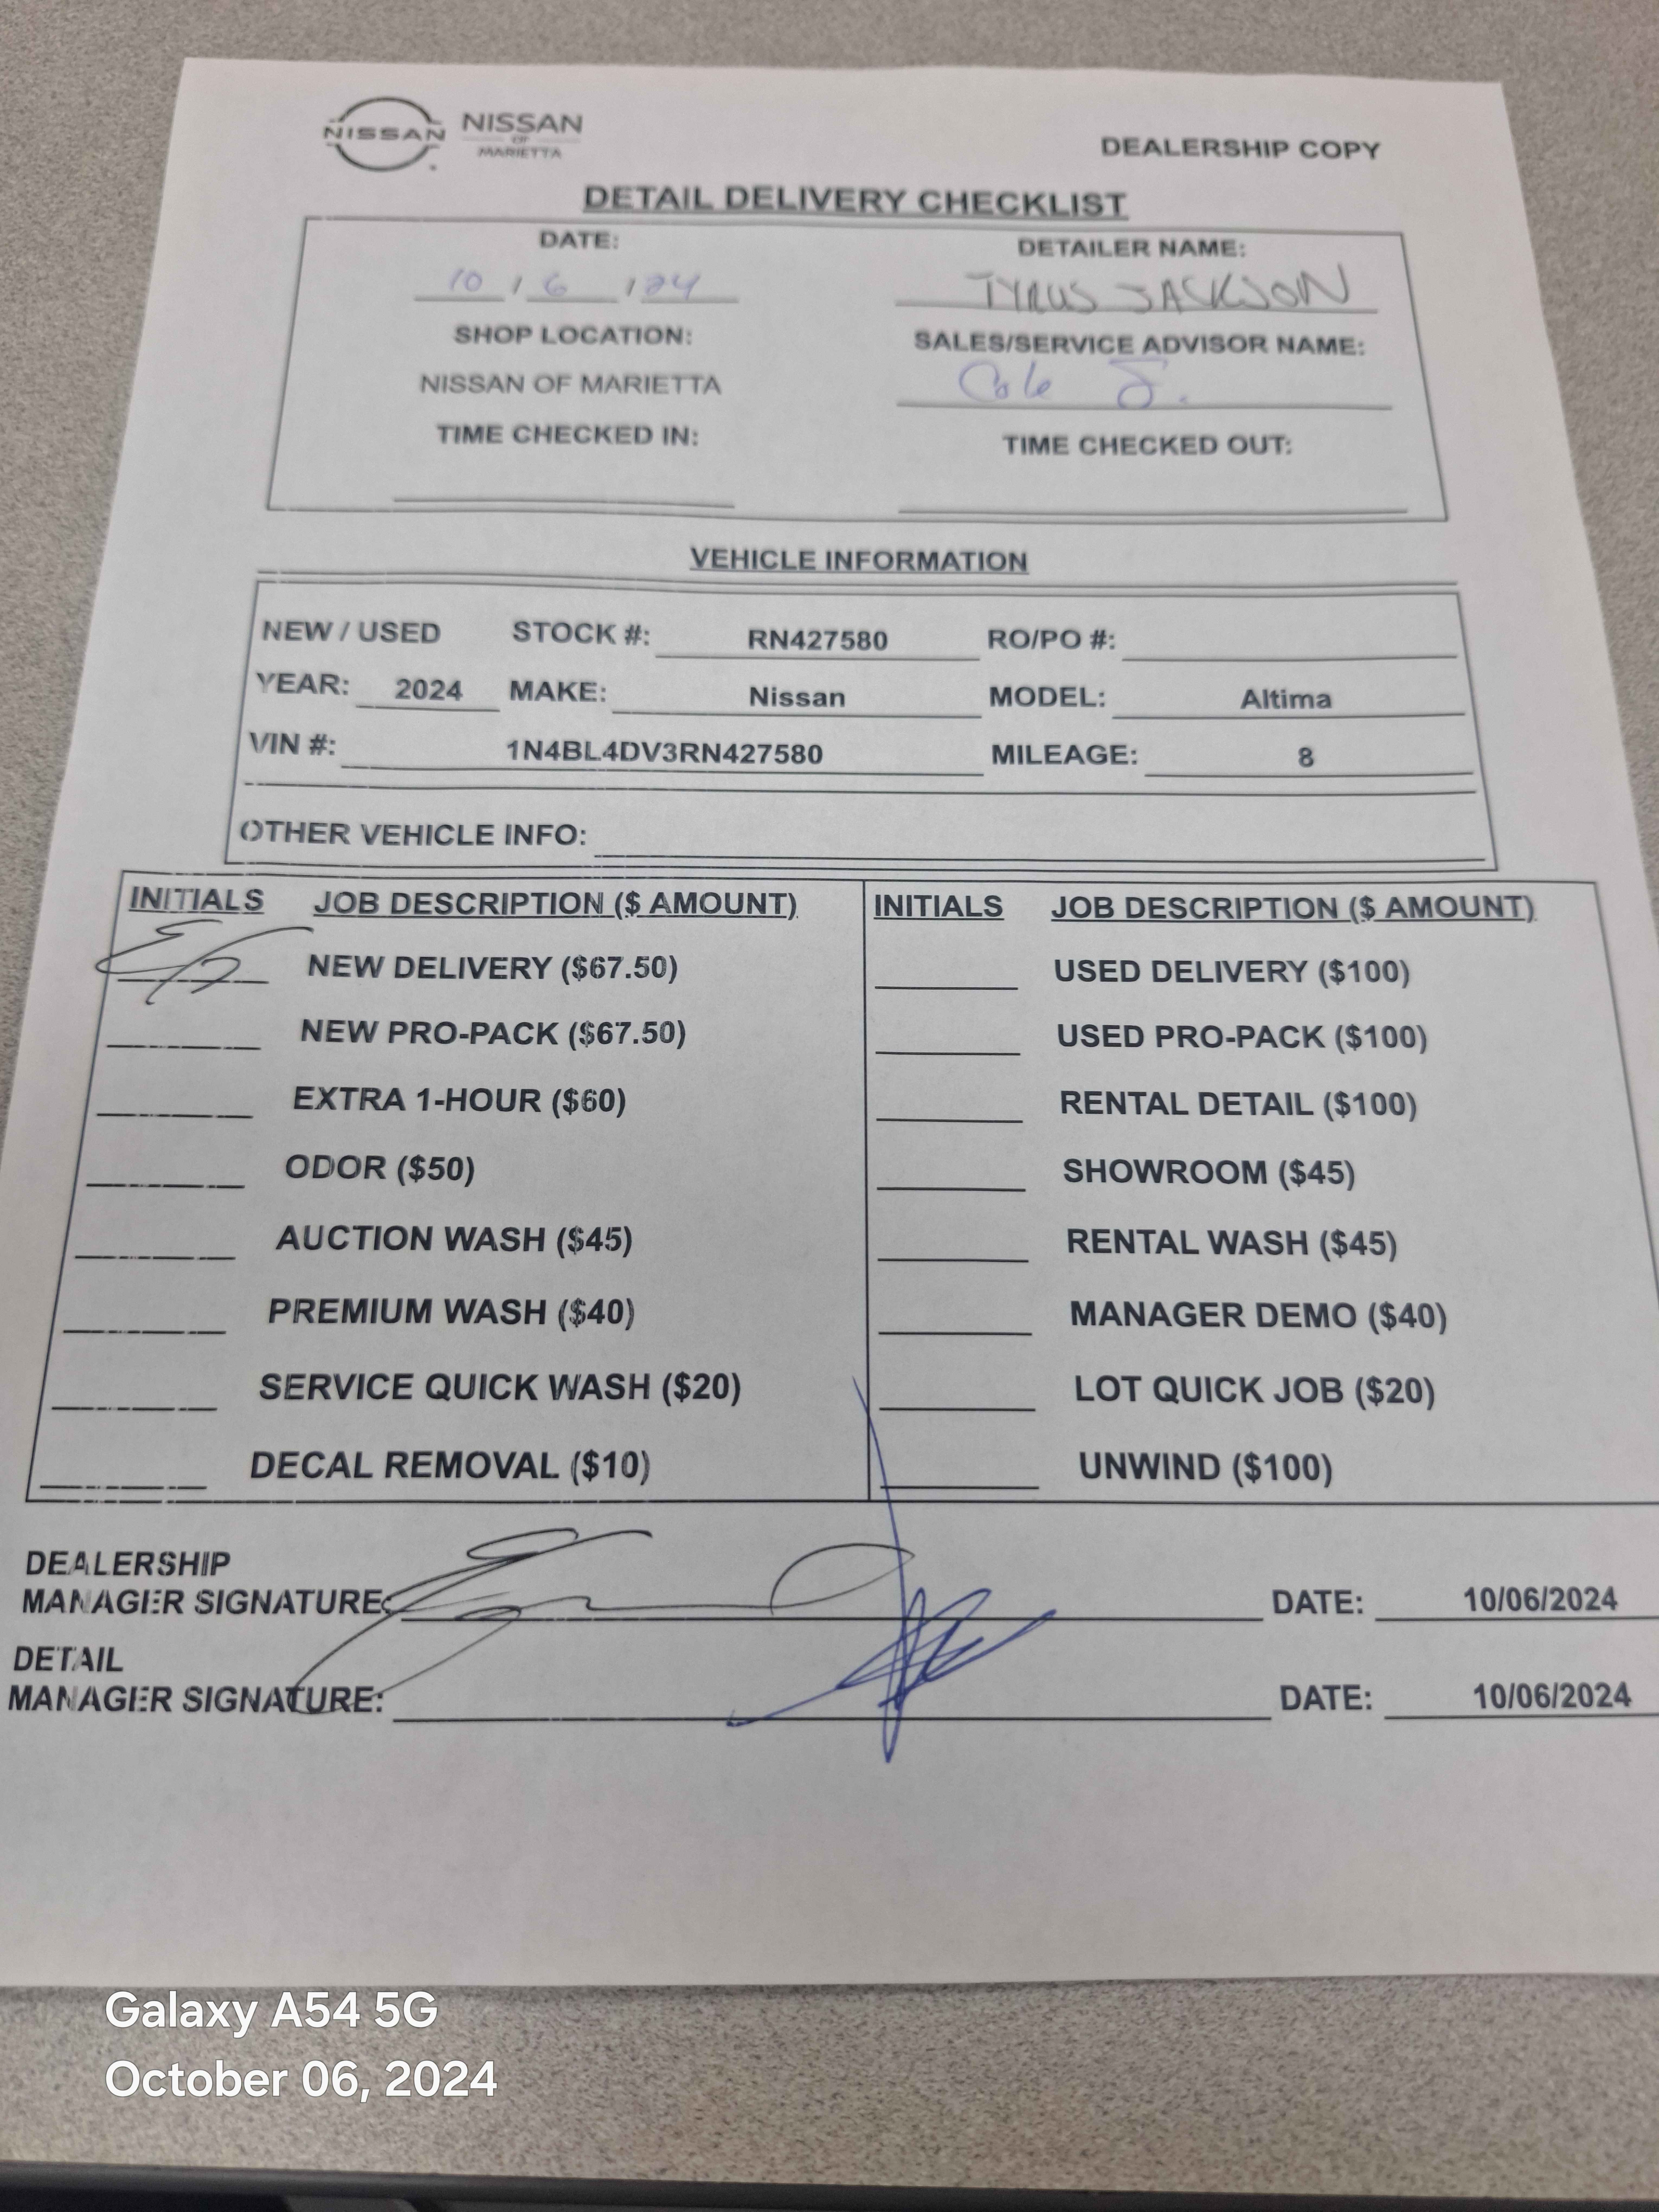 NISSAN
NISSAN
OF
MARIETTA
DEALERSHIP COPY
DETAIL DELIVERY CHECKLIST
DATE: DETAILER NAME:
10 / 6 / 24 TYRUS JACKSON
SHOP LOCATION: SALES/SERVICE ADVISOR NAME:
NISSAN OF MARIETTA Cole J.
TIME CHECKED IN: TIME CHECKED OUT:
VEHICLE INFORMATION
NEW / USED STOCK #: RN427580 RO/PO #:
YEAR: 2024 MAKE: Nissan MODEL: Altima
VIN #: 1N4BL4DV3RN427580 MILEAGE: 8
OTHER VEHICLE INFO:
INITIALS JOB DESCRIPTION ($ AMOUNT) INITIALS JOB DESCRIPTION ($ AMOUNT)
NEW DELIVERY ($67.50) USED DELIVERY ($100)
NEW PRO-PACK ($67.50) USED PRO-PACK ($100)
EXTRA 1-HOUR ($60) RENTAL DETAIL ($100)
ODOR ($50) SHOWROOM ($45)
AUCTION WASH ($45) RENTAL WASH ($45)
PREMIUM WASH ($40) MANAGER DEMO ($40)
SERVICE QUICK WASH ($20) LOT QUICK JOB ($20)
DECAL REMOVAL ($10) UNWIND ($100)
DEALERSHIP
MANAGER SIGNATURE: DATE: 10/06/2024
DETAIL
MANAGER SIGNATURE: DATE: 10/06/2024
Galaxy A54 5G
October 06, 2024